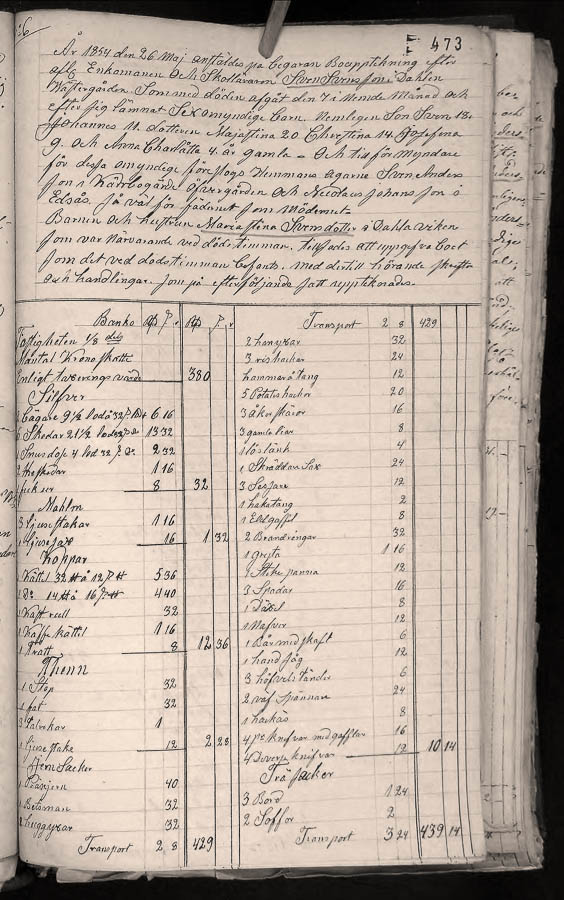 473
År 1854 den 26 Maj anstäldes på begäran Boupptekning efter
afl. Enkomannen Och Skolläraren Sven Svensson i Dahlen
Wästergården Som med döden afgåt den 7 i Mende Månad och
efter sig lämnat Sex omyndige barn. Nemligen Son Sven 18.
Johannes 11. dottren Majastina 20 Cherstina 14. Josefena
9. och Anna Charlåtta 4. år gamla = Och til förmyndare
för dessa omyndige föreslogs Hemmans egarne Sven Anders
son i Kärrbogärde öfvergården Och Nicolaus Johansson i
Edsås. så väl för fädernet som Mödernet
Barnen och hustrun Mariastina Svensdotter i Dahla viken
som var Närvarande ved dödstimman. tillsades att uppgefva boet
som det ved dödstimman befants. med dertill hörande skrifter
och handlingar. som på efterföljande satt upptiknades.
Banko Rd β r Rd β r
Fastigheten 1/8 dels
Mantal Krono skatte
Enligt taxerings värde 380
Silfver
Bägare 9 1/2 lod å 32 β 6 16
6 Skedar 21 1/2 lod 13 32
1 Snusdosa 4 lod 32 β 2 32
Theskedar 1 16
8 32
Mahlm
3 ljusestakar 1 16
1 ljusesax 16 1 32
Koppar
1 Kättil 32 å 12 β 5 36
1 Do 14 å 16 β 4 40
1 Kaffe kättil 1 16
1 Tratt 8 12 36
Thenn
1 Stop 32
1 fat 32
3 talrikar 1
1 ljusestake 12 2 28
Jern Saker
40
1 Betsman 32
2 huggyxar 32
Transport 2 8 429
Transport 2 8 429
2 hanyxar 32
3 rishackor 24
hammare å tång 12
5 Potates hackor 20
3 åkerskäror 16
3 gamla liar 8
1 löslänk 4
1 Skräddare Sax 24
3 12
1 haketång 2
1 Eldgaffel 8
2 Brandringar 32
1 gryta 1 16
1 Stekepanna 12
3 Spadar 16
1 8
1 Nafver 12
1 Bår med skaft 6
1 handsåg 12
3 höfvelständer 6
2 väf Spännare 24
1 8
4 pr knifvar med gafflar 16
4 Diverse knifvar 12 10 14
Trä Saker
3 Bord 1 24
2 Soffor 2
Transport 3 24 439 14